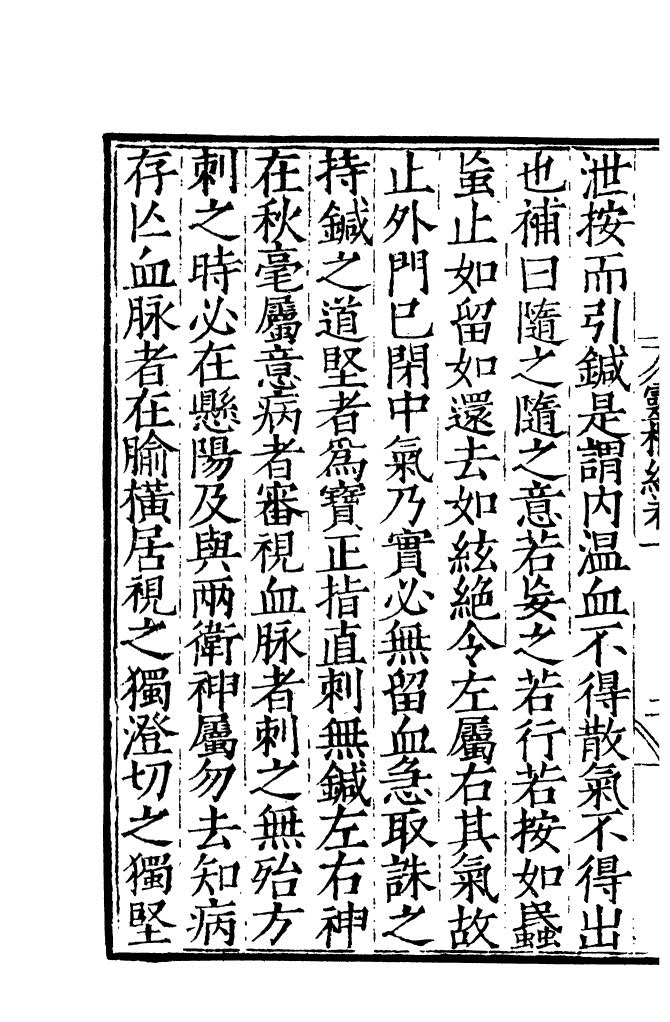 泄按而引鍼是謂内温血不得散氣不得出
也補曰隨之隨之意若妄之若行若按如蟁
䖟止如留如還去如絃絶令左屬右其氣故
止外門已閉中氣乃實必無留血急取誅之
持鍼之道堅者爲寶正指直刺無鍼左右神
在秋毫屬意病者審視血脉者刺之無殆方
刺之時必在懸陽及與兩衛神屬勿去知病
存亾血脉者在腧橫居視之獨澄切之獨堅